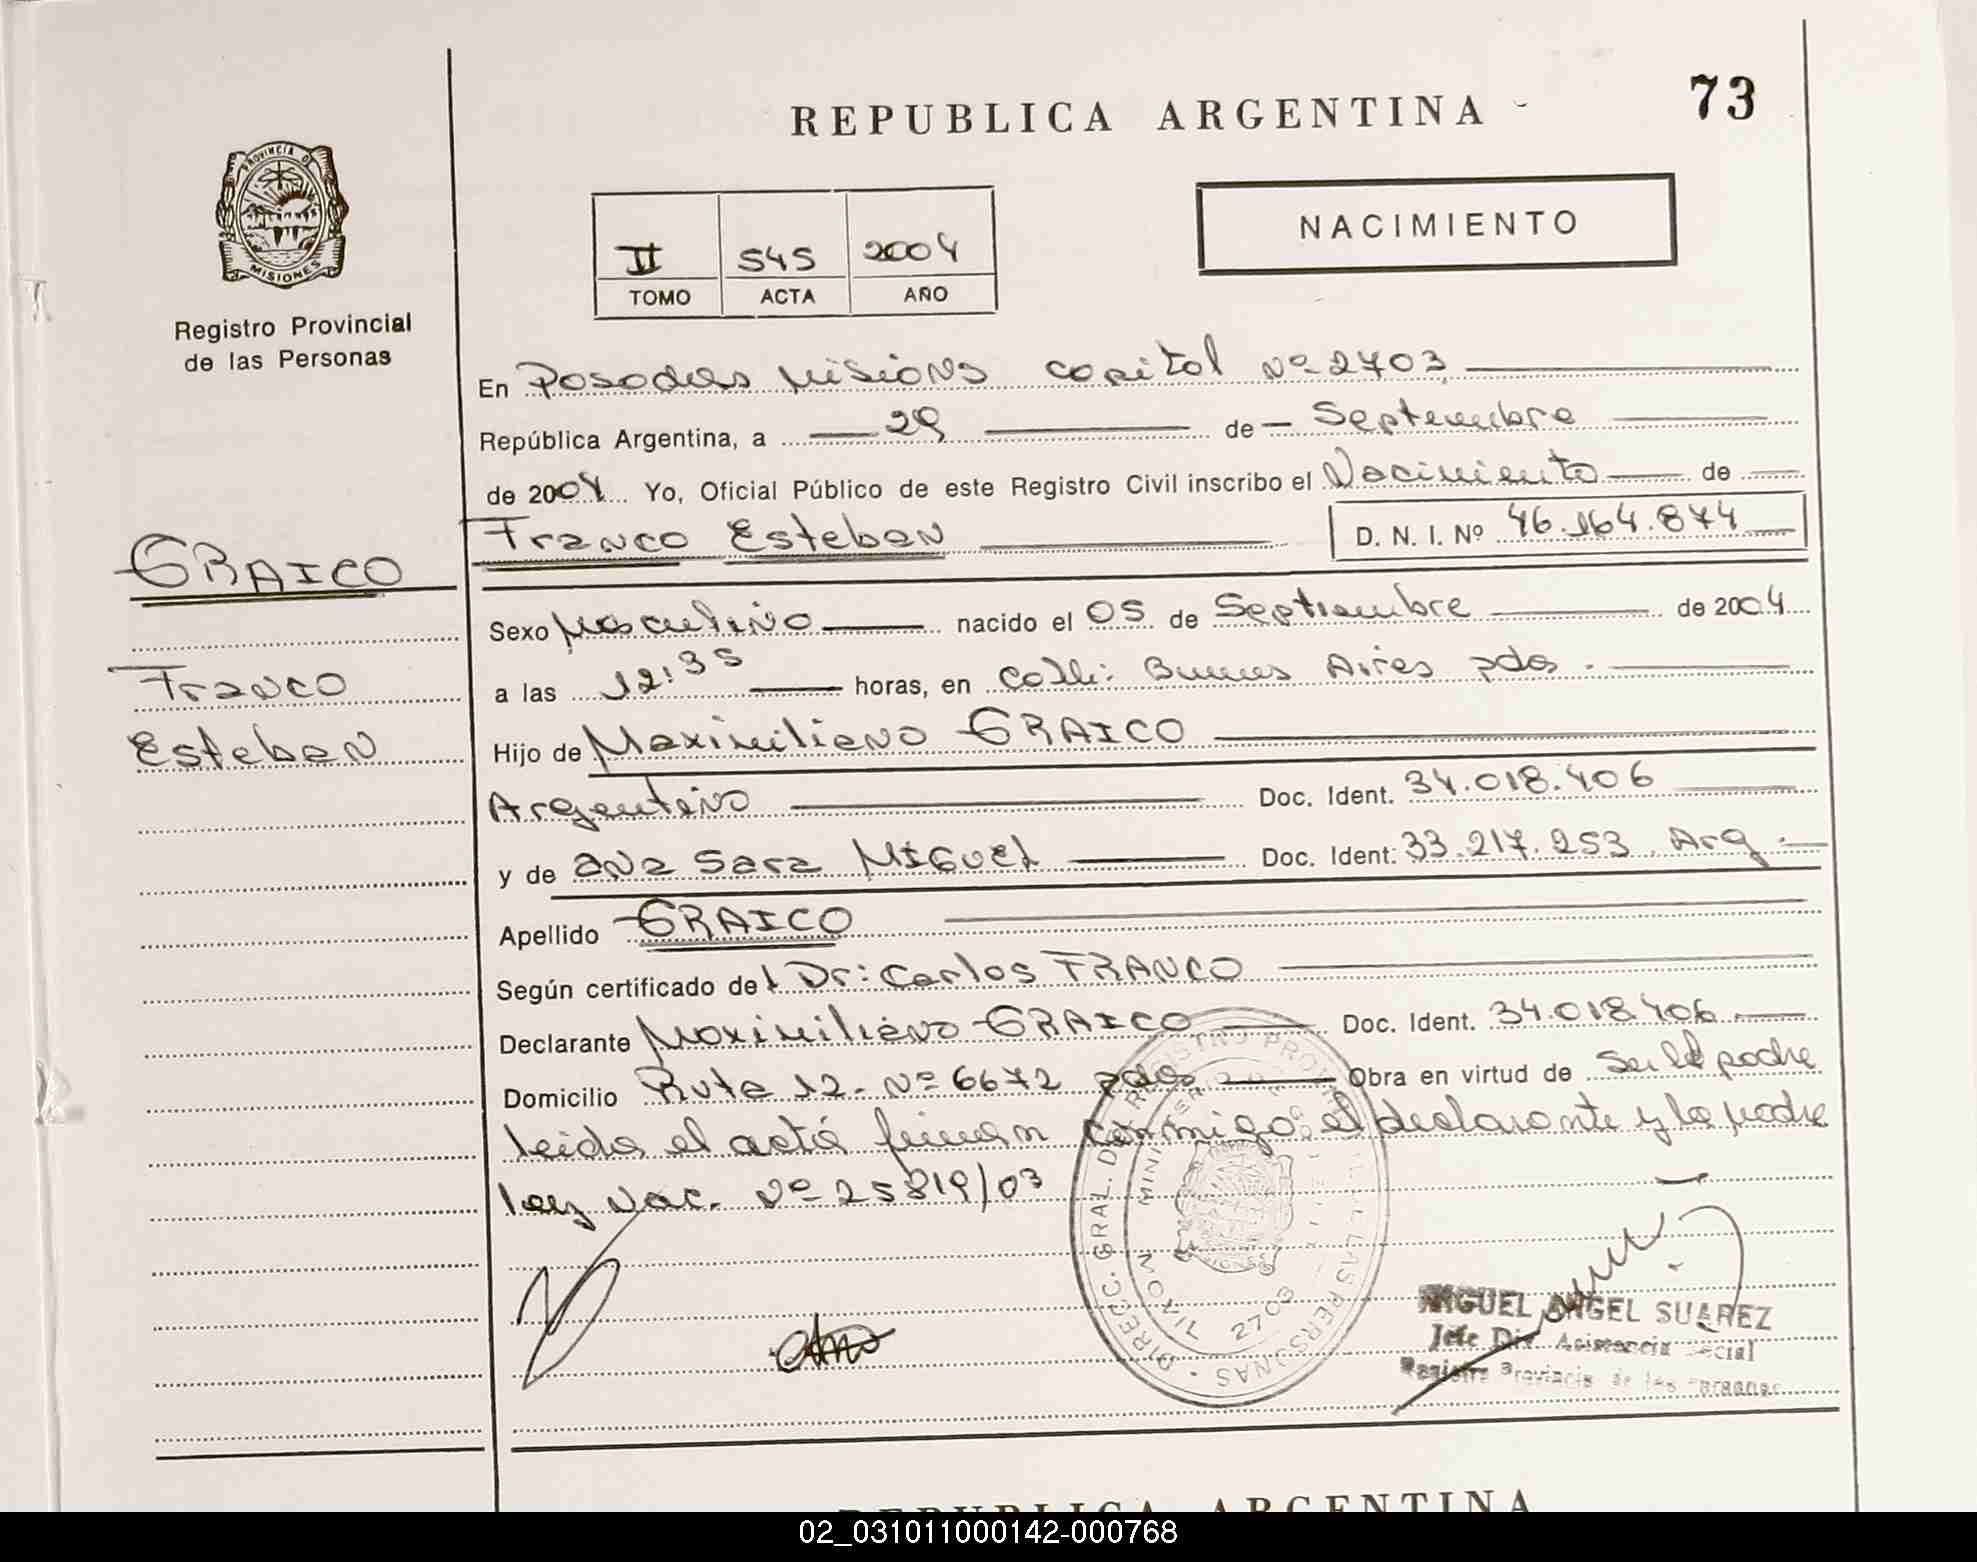 REPUBLICA ARGENTINA
73
PROVINCIA DE
MISIONES
Registro Provincial
de las Personas
II 545 2004
TOMO ACTA AÑO
NACIMIENTO
En Posadas Misiones capital Nº 2703
República Argentina, a 29 de Septiembre
de 2004 Yo, Oficial Público de este Registro Civil inscribo el Nacimiento de
Franco Esteban D. N. I. Nº 46.164.874
GRAICO
Franco
Esteban
Sexo Masculino nacido el 05 de Septiembre de 2004
a las 12:35 horas, en Calle: Buenos Aires pdas.
Hijo de Maximiliano GRAICO
Argentino Doc. Ident. 34.018.406
y de Ana Sara MIGUEL Doc. Ident: 33.217.253 Arg.
Apellido GRAICO
Según certificado del Dr: Carlos FRANCO
Declarante Maximiliano GRAICO Doc. Ident. 34.018.406
Domicilio Ruta 12 - Nº 6672 pdas Obra en virtud de ser el padre
leida el acta firman conmigo el declarante y la madre
ley Nac. Nº 25819/03
DIRECC. GRAL. DEL REGISTRO PROVINCIAL DE LAS PERSONAS
2703
MIGUEL ANGEL SUAREZ
Jefe Div. Asistencia Social
Registro Provincial de las Personas
REPUBLICA ARGENTINA
02_031011000142-000768